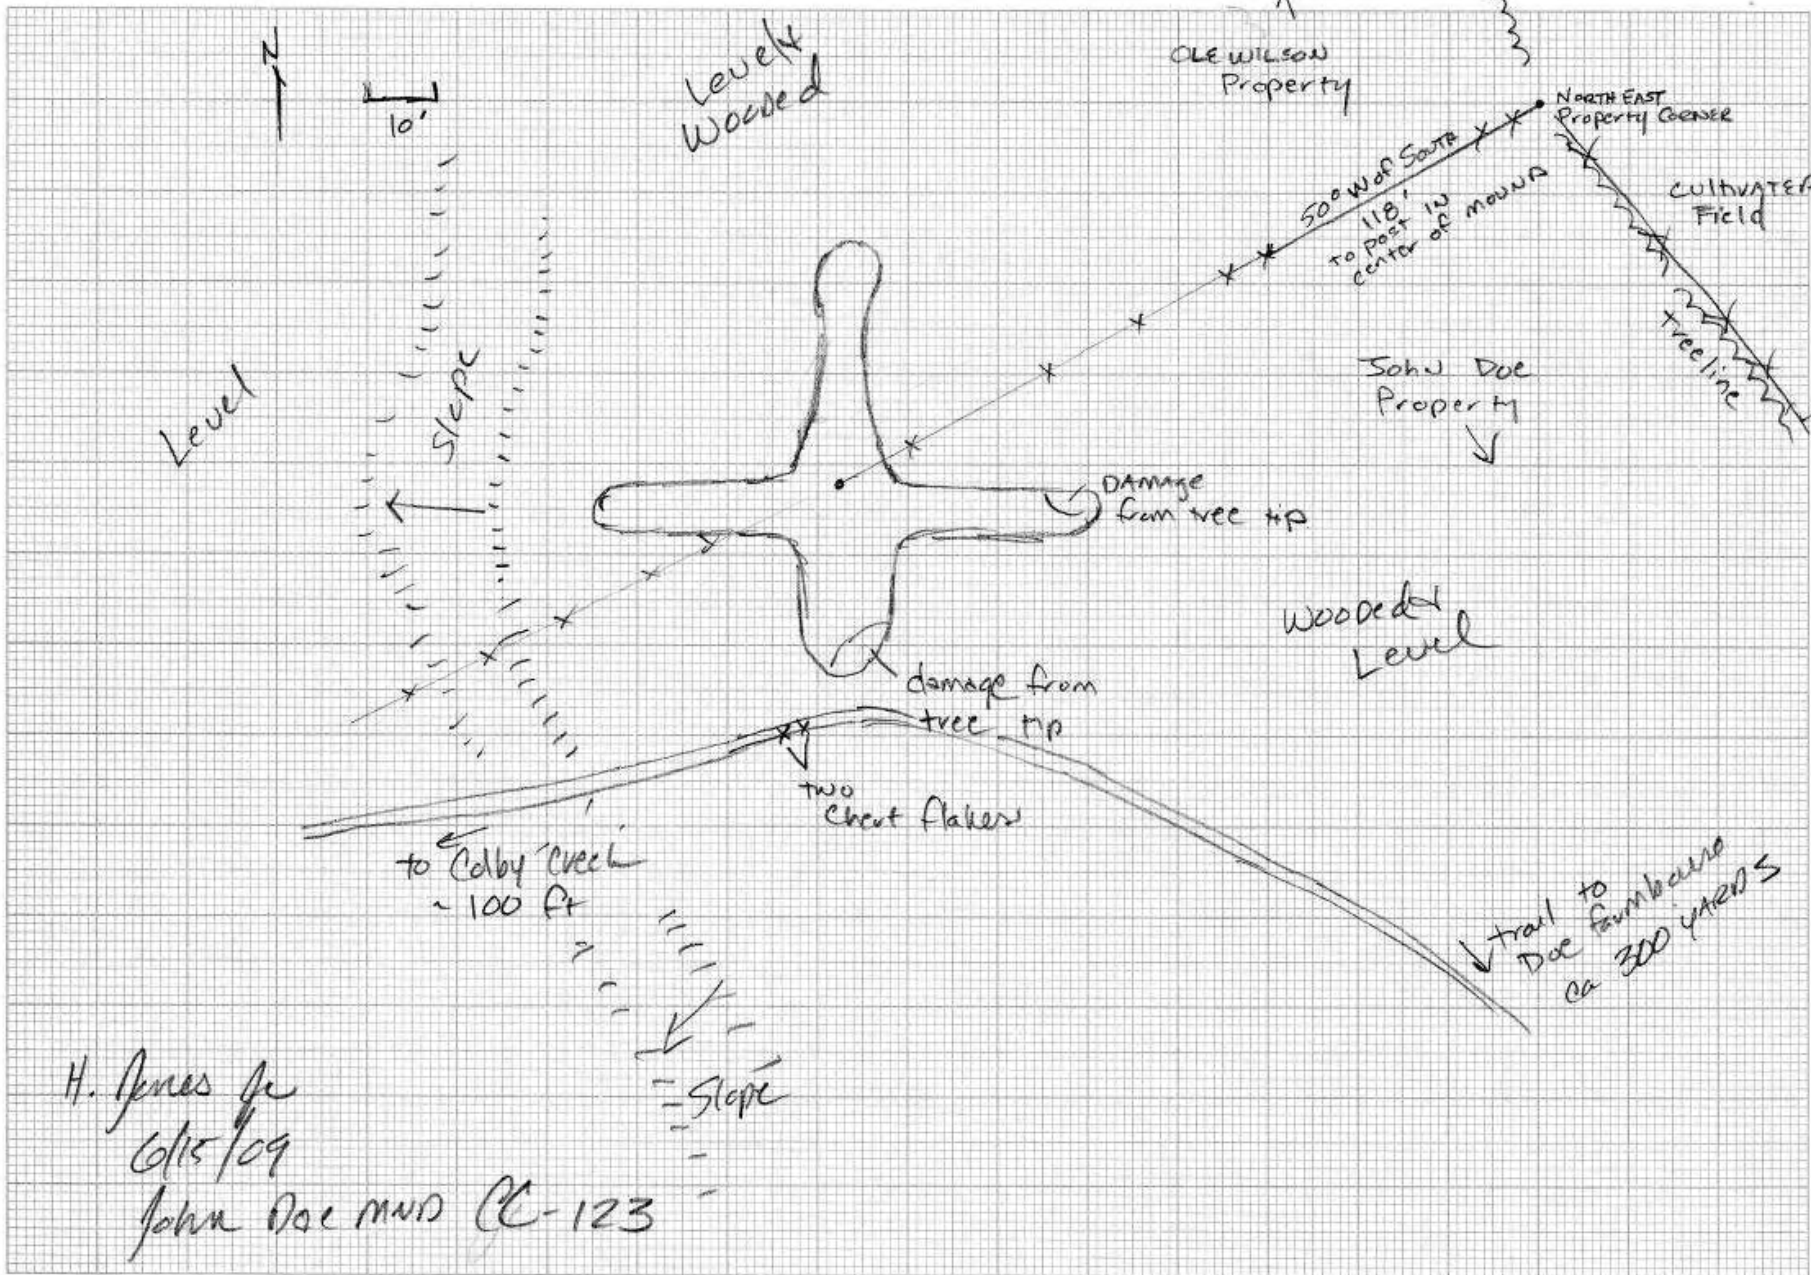 N
10'
Level &
Wooded
OLE WILSON
Property
NORTH EAST
Property CORNER
50° W of South
118'
to post in
center of mound
CULTIVATED
Field
treeline
John Doe
Property
Level
Slope
DAMAGE
from tree tip
Wooded &
Level
damage from
tree tip
two
Chert flakes
to Colby Creek
~ 100 ft
trail to
Doe farmhouse
ca 300 YARDS
Slope
H.
6/15/09
John Doe MND CC-123